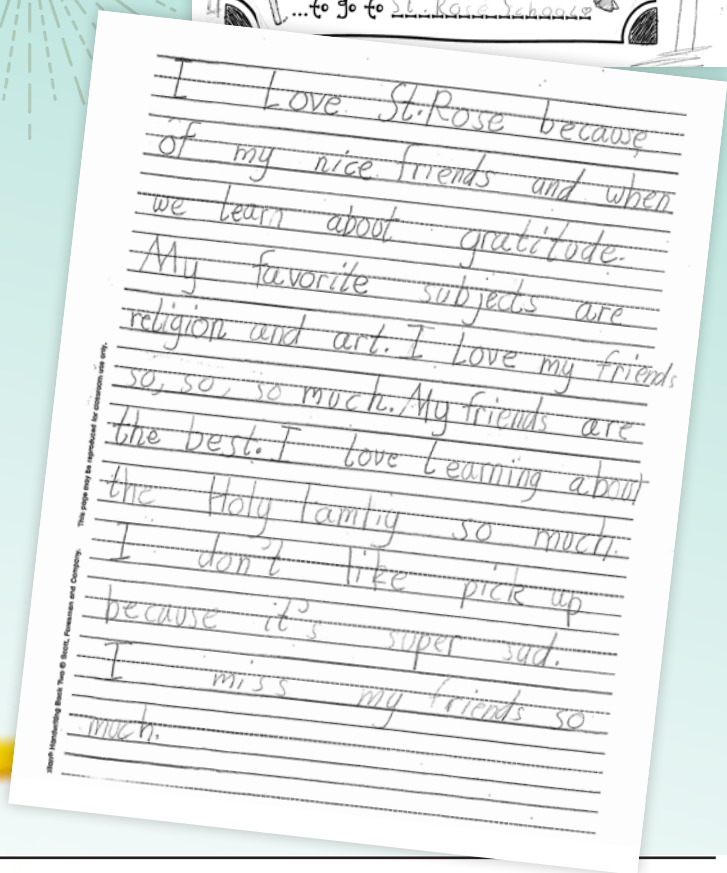 ...to go to St. Rose School
I Love St. Rose because
of my nice friends and when
we learn about gratitude.
My favorite subjects are
religion and art. I Love my friends
so, so, so much. My friends are
the best. I love Learning about
the Holy Family so much.
I don't like pick up
because it's super sad.
I miss my friends so
much.
This page may be reproduced for classroom use only.
Handwriting Book Two © Scott, Foresman and Company.